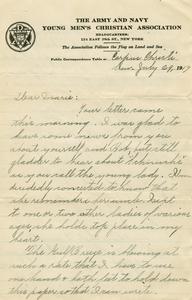 THE ARMY AND NAVY
YOUNG MEN'S CHRISTIAN ASSOCIATION
HEADQUARTERS:
124 EAST 28th ST., NEW YORK
The Association Follows the Flag on Land and Sea
Public Correspondence Table at Corpus Christi
July 29, 1917
Dear Dearie:
Your letter came
this morning. I was glad to
have some news from you
about yourself and Bob but still
gladder to hear about "Schnucks"
as you call the young lady. I'm
decidedly conceited to know that
she remembers for while. Next
to one or two other ladies of various
ages, she holds top place in my
heart.
The Gulf Breeze is blowing at
such a rate that I have to use
one hand & hotel bat to hold down
this paper so that I can write.